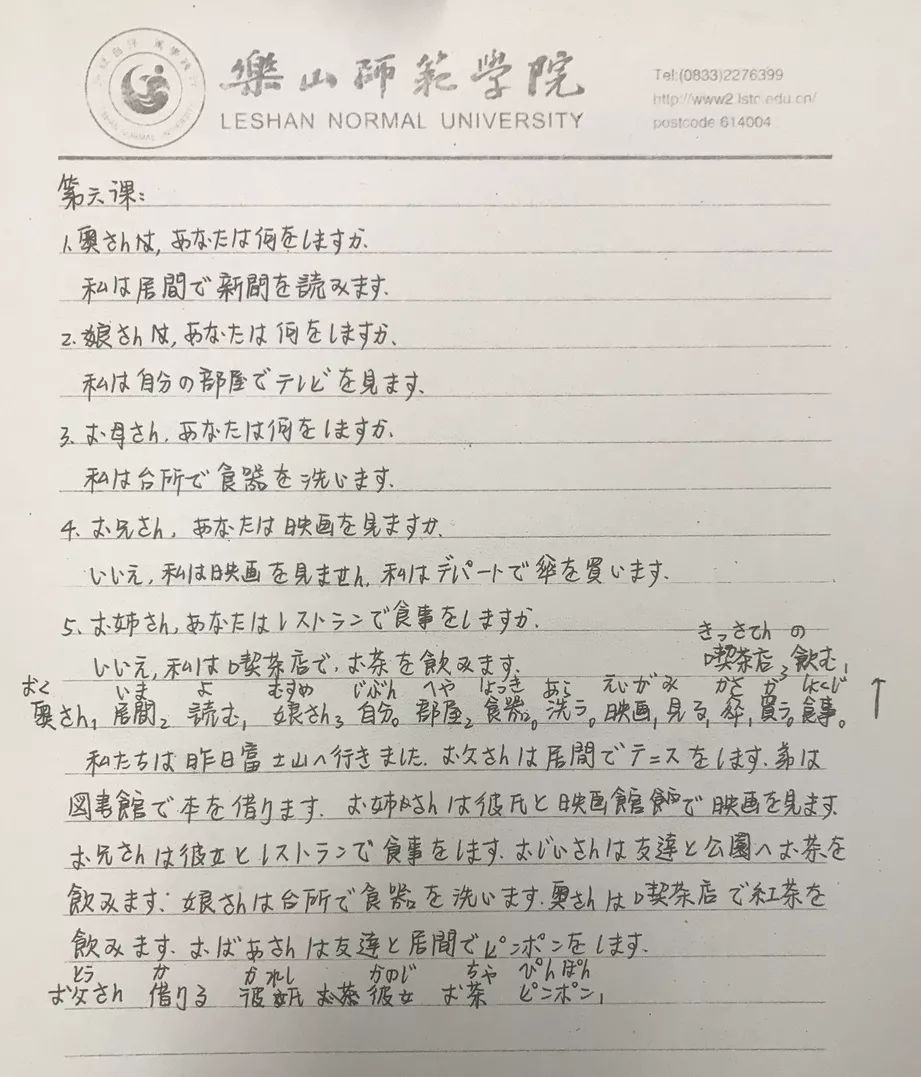 樂山師範學院
LESHAN NORMAL UNIVERSITY
Tel:(0833)2276399
http://www2.lstc.edu.cn/
postcode 614004
第六课:
1.奥さんは,あなたは何をしますか.
私は居間で新聞を読みます.
2.娘さんは,あなたは何をしますか.
私は自分の部屋でテレビを見ます.
3.お母さん,あなたは何をしますか.
私は台所で食器を洗います.
4.お兄さん,あなたは映画を見ますか.
いいえ,私は映画を見ません,私はデパートで傘を買います.
5.お姉さん,あなたはレストランで食事をしますか.
きっさてん の
いいえ,私は喫茶店で.お茶を飲みます. 喫茶店3 飲む1
おく いま よ むすめ じぶん へや しょっき あら えいが み かさ か しょくじ
奥さん1 居間2 読む1 娘さん3 自分0 部屋2 食器0 洗う0 映画1 見る1 傘1 買う0 食事0 ↑
私たちは昨日富士山へ行きました.お父さんは居間でテニスをします.弟は
図書館で本を借ります. お姉さんは彼氏と映画館で映画を見ます.
お兄さんは彼女とレストランで食事をします.おじいさんは友達と公園へお茶を
飲みます.娘さんは台所で食器を洗います.奥さんは喫茶店で紅茶を
飲みます.おばあさんは友達と居間でピンポンをします.
とう か かれし かのじ ちゃ ぴんぽん
お父さん 借りる 彼氏 彼女 お茶 ピンポン1